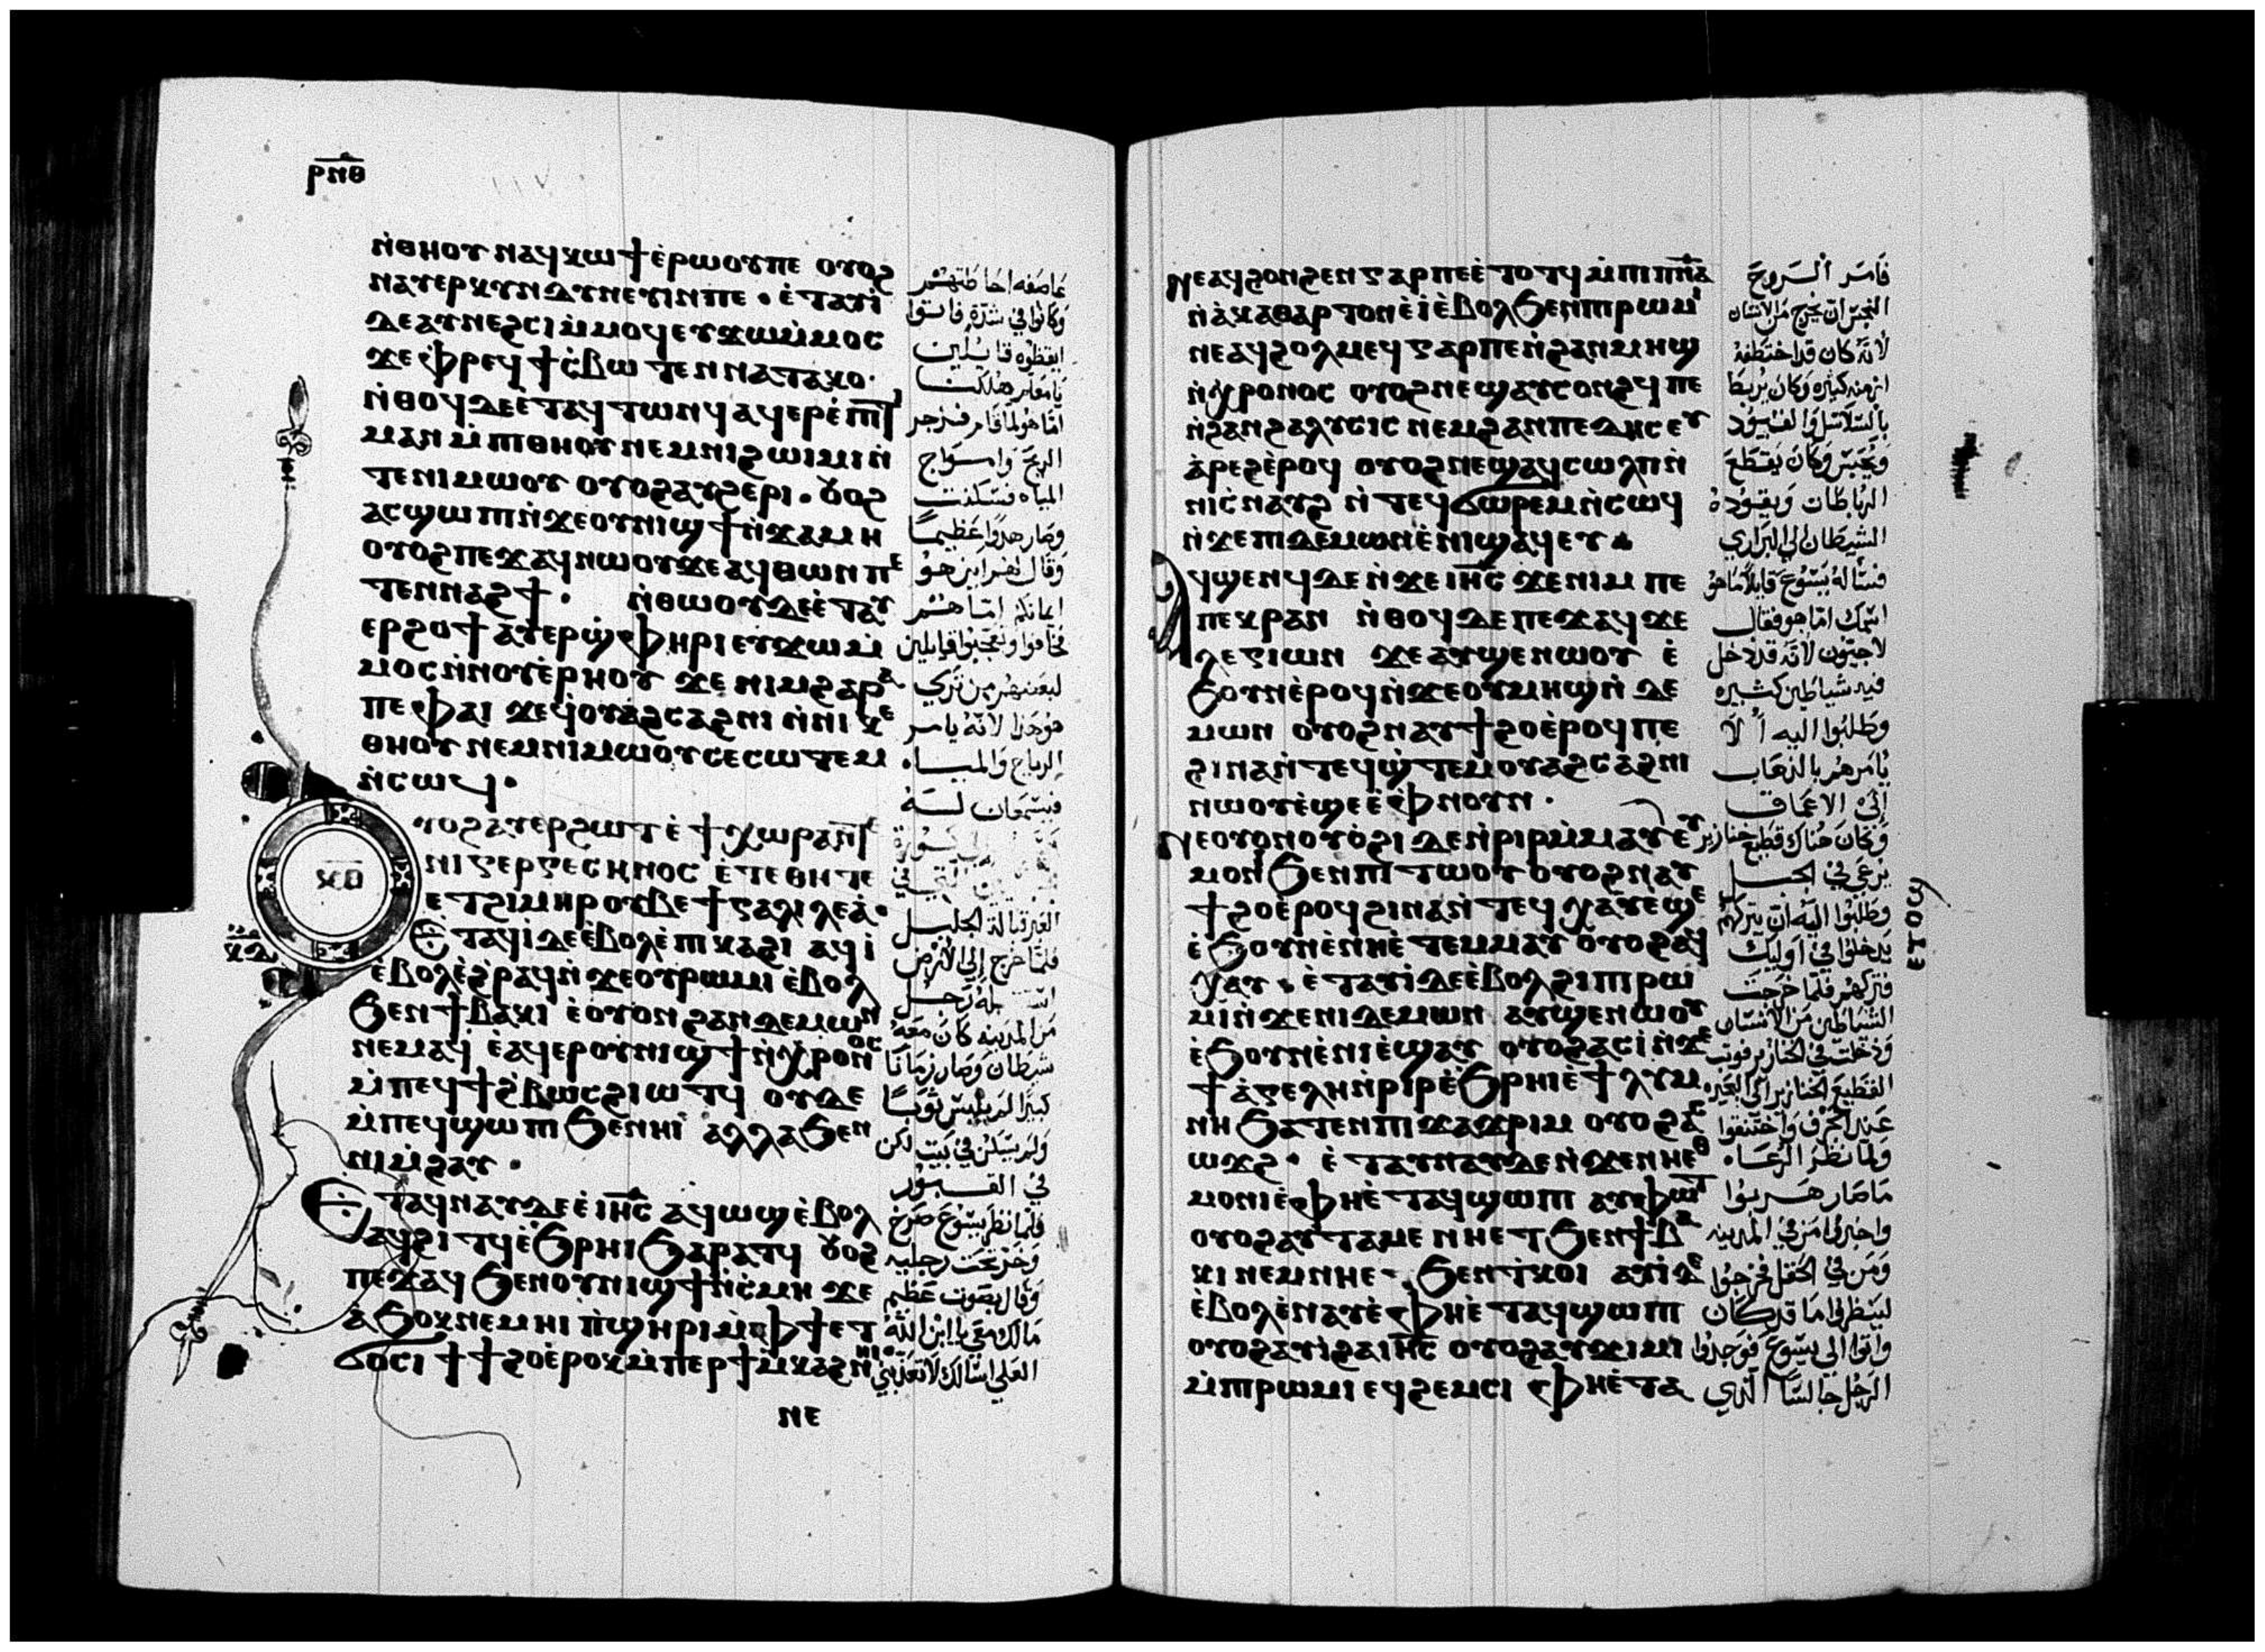 ⲣⲛⲑ
ⲛ̀ⲑⲏⲟⲩ ⲛⲁϥⲭⲱϯ ⲉ̀ⲣⲱⲟⲩⲡⲉ ⲟⲩⲟϩ
ⲛⲁⲩⲉⲣⲕⲩⲛⲇⲩⲛⲉⲩⲓⲛⲡⲉ · ⲉ̀ⲧⲁⲩⲓ̀
ⲇⲉⲁⲩⲛⲉϩⲥⲓ ⲙ̀ⲙⲟϥ ⲉⲩϫⲱⲙ̀ⲙⲟⲥ
ϫⲉ ⲫ̀ⲣⲉϥϯⲥ̀ⲃⲱ ⲧⲉⲛⲛⲁⲧⲁⲕⲟ ·
ⲛ̀ⲑⲟϥⲇⲉ ⲉ̀ⲧⲁϥⲧⲱⲛϥ ⲁϥⲉⲣⲉ̀ⲡⲓⲧ
ⲙⲁⲛ ⲙ̀ⲡⲓⲑⲏⲟⲩ ⲛⲉⲙⲛⲓϩⲱⲓⲙⲓ ⲛ̀
ⲧⲉⲛⲓⲙⲱⲟⲩ ⲟⲩⲟϩⲁⲩϩⲉⲣⲓ · ⲟⲩⲟϩ
ⲁⲥϣⲱⲡⲓ ⲛ̀ϫⲉⲟⲩⲛⲓϣϯ ⲛ̀ϫⲁⲙⲏ
ⲟⲩⲟϩⲡⲉϫⲁϥ ⲛⲱⲟⲩ ϫⲉⲁϥⲑⲱⲛ ⲡⲉ
ⲧⲉⲛⲛⲁϩϯ · ⲛ̀ⲑⲱⲟⲩⲇⲉ ⲉ̀ⲧⲁⲩ
ⲉⲣϩⲟϯ ⲁⲩⲉⲣϣ̀ⲫⲏⲣⲓ ⲉⲩϫⲱⲙ̀
ⲙⲟⲥ ⲛ̀ⲛⲟⲩⲉ̀ⲣⲏⲟⲩ ϫⲉ ⲛⲓⲙϩⲁⲣⲁ
ⲡⲉ ⲫⲁⲓ ϫⲉϥ̀ⲟⲩⲁϩⲥⲁϩⲛⲓ ⲛ̀ⲛⲓⲕⲉ
ⲑⲏⲟⲩ ⲛⲉⲙⲛⲓⲙⲱⲟⲩ ⲥⲉⲥⲱⲧⲉⲙ
ⲛ̀ⲥⲱϥ ·
ⲩⲟϩ ⲁⲩⲉⲣϩⲱⲧ ⲉ̀ ϯⲭⲱⲣⲁ ⲛ̀ⲧⲉ
ⲛⲓⲅⲉⲣⲅⲉⲥⲏⲛⲟⲥ ⲉ̀ⲧⲉⲑⲏⲧⲉ
ⲉⲧϩⲓⲙⲏⲣ ⲟⲩⲃⲉ ϯⲅⲁⲗⲓⲗⲉⲁ̀ ·
Ⲉⲧⲁϥⲓ̀ⲇⲉ ⲉ̀ⲃⲟⲗ ⲉ̀ⲡⲓⲕⲁϩⲓ ⲁϥⲓ̀
ⲉ̀ⲃⲟⲗ ⲉ̀ϩ̀ⲣⲁϥ ⲛ̀ϫⲉⲟⲩⲣⲱⲙⲓ ⲉ̀ⲃⲟⲗ
ϧⲉⲛϯⲃⲁⲕⲓ ⲉ̀ⲟⲩⲟⲛ ϩⲁⲛⲇⲉⲙⲱⲛ
ⲛⲉⲙⲁϥ ⲉ̀ⲁϥⲉⲣⲟⲩⲛⲓϣϯ ⲛ̀ⲭⲣⲟⲛⲟⲥ
ⲙ̀ⲡⲉϥϯϩ̀ⲃⲱⲥ ϩⲓⲱⲧϥ ⲟⲩⲇⲉ
ⲙ̀ⲡⲉϥϣⲱⲡⲓ ϧⲉⲛⲏⲓ ⲁⲗⲗⲁ ϧⲉⲛ
ⲛⲓⲙ̀ϩⲁⲩ ·
Ⲉⲧⲁϥⲛⲁⲩⲇⲉ ⲉ̀ⲓⲏⲥ ⲁϥⲱϣ ⲉ̀ⲃⲟⲗ
ⲁϥϩⲓⲧϥ ⲉ̀ϧⲣⲏⲓ ϧⲁⲣⲁⲧϥ ⲟⲩⲟϩ
ⲡⲉϫⲁϥ ϧⲉⲛⲟⲩⲛⲓϣϯ ⲛ̀ⲥ̀ⲙⲏ ϫⲉ
ⲁ̀ϧⲟⲕ ⲛⲉⲙⲏⲓ ⲡ̀ϣⲏⲣⲓ ⲙ̀ⲫϯ ⲉⲧ
ϭⲟⲥⲓ ϯϯϩⲟ ⲉ̀ⲣⲟⲕ ⲙ̀ⲡⲉⲣϯⲙ̀ⲕⲁϩ ⲛⲏⲓ
ⲛⲉ
عاصفه احاطتهم
وكانوا في شدة فاتوا
ايقظوه قايلين
يا معلم هلكنا
اما هو لما قام فزجر
الريح وامواج
المياه فسكنت
وصار هدوا عظيما
وقال لهم اين هو
ايمانكم اما هم
فخافوا وتعجبوا قايلين
لبعضهم من تري
هو هذا لانه يامر
الرياح والمياه
فيسمعان له
العبر قبالة الجليل
فلما خرج إلي الارض
من المدينه كان معه
شيطان وصار زمانا
كبيرا لم يلبس ثوبا
ولم يسكن في بيت لكن
في القبور
فلما نظر يسوع صرخ
وخر تحت رجليه
وقال بصوت عظيم
مالك معي يا ابن الله
العلي اسالك لا تعذبني
Ⲛⲉⲁϥϩⲟⲛϩⲉⲛ ⲅⲁⲣⲡⲉ ⲉ̀ⲧⲟⲧϥ ⲙ̀ⲡⲓⲡⲛⲁ
ⲛ̀ⲁ̀ⲕⲁⲑⲁⲣⲧⲟⲛ ⲉ̀ⲓ̀ ⲉ̀ⲃⲟⲗ ϧⲉⲛⲡⲓⲣⲱⲙⲓ
ⲛⲉⲁϥϩⲟⲗⲙⲉϥ ⲅⲁⲣⲡⲉ ⲛ̀ϩⲁⲛⲙⲏϣ
ⲛ̀ⲭⲣⲟⲛⲟⲥ ⲟⲩⲟϩ ⲛⲉϣⲁⲩⲥⲟⲛϩϥ ⲡⲉ
ⲛ̀ϩⲁⲛϩⲁⲗⲩⲥⲓⲥ ⲛⲉⲙϩⲁⲛⲡⲉⲇⲏⲥ ⲉⲩ
ⲁ̀ⲣⲉϩ ⲉ̀ⲣⲟϥ ⲟⲩⲟϩ ⲛⲉϣⲁϥⲥⲱⲗⲡ ⲛ̀
ⲛⲓⲥ̀ⲛⲁⲩϩ ⲛ̀ⲧⲉϥϭⲱⲣⲉⲙ ⲛ̀ⲥⲱϥ
ⲛ̀ϫⲉⲡⲓⲇⲉⲙⲱⲛ ⲉ̀ⲛⲓϣⲁϥⲉⲩ
Ⲁϥϣⲉⲛϥⲇⲉ ⲛ̀ϫⲉⲓⲏⲥ ϫⲉⲛⲓⲙ ⲡⲉ
ⲡⲉⲕⲣⲁⲛ ⲛ̀ⲑⲟϥⲇⲉ ⲡⲉϫⲁϥ ϫⲉ
ⲗⲉⲅⲓⲱⲛ ϫⲉⲁⲩϣⲉⲛⲱⲟⲩ ⲉ̀
ϧⲟⲩⲛ ⲉ̀ⲣⲟϥ ⲛ̀ϫⲉⲟⲩⲙⲏϣ ⲛ̀ⲇⲉ
ⲙⲱⲛ ⲟⲩⲟϩ ⲛⲁⲩϯϩⲟ ⲉ̀ⲣⲟϥⲡⲉ
ϩⲓⲛⲁ ⲛ̀ⲧⲉϥϣ̀ⲧⲉⲙⲟⲩⲁϩⲥⲁϩⲛⲓ
ⲛⲱⲟⲩ ⲉ̀ϣⲉ ⲉ̀ⲫⲛⲟⲩⲛ ·
Ⲛⲉⲟⲩⲟⲛ ⲟⲩⲟ̀ϩⲓ ⲇⲉ ⲛ̀ⲣⲓⲣ ⲙ̀ⲙⲁⲩ ⲉⲩ
ⲙⲟⲛⲓ ϧⲉⲛⲡⲓⲧⲱⲟⲩ ⲟⲩⲟϩ ⲛⲁⲩ
ϯϩⲟ ⲉ̀ⲣⲟϥ ϩⲓⲛⲁ ⲛ̀ⲧⲉϥⲭⲁⲩ ⲉϣⲉ
ⲉ̀ϧⲟⲩⲛ ⲉ̀ⲛⲏⲉ̀ⲧⲉⲙⲙⲁⲩ ⲟⲩⲟϩ ⲁϥ
ⲭⲁⲩ · ⲉ̀ⲧⲁⲩⲓ̀ⲇⲉ ⲉ̀ⲃⲟⲗ ϩⲓⲡⲓⲣⲱ
ⲙⲓ ⲛ̀ϫⲉⲛⲓⲇⲉⲙⲱⲛ ⲁⲩϣⲉⲛⲱⲟⲩ
ⲉ̀ϧⲟⲩⲛ ⲉ̀ⲛⲓⲉ̀ϣⲁⲩ ⲟⲩⲟϩ ⲁⲥⲓ̀ ⲛ̀ϫⲉ
ϯⲁ̀ⲅⲉⲗⲏ ⲛ̀ⲣⲓⲣ ⲉ̀ϧⲣⲏⲓ ⲉ̀ϯⲗⲩⲙ
ⲛⲏ ϧⲁⲧⲉⲛ ⲡⲓϫⲁϫⲣⲓⲙ ⲟⲩⲟϩ ⲁⲥ
ⲱϫϩ · ⲉ̀ⲧⲁⲩⲛⲁⲩⲇⲉ ⲛ̀ϫⲉⲛⲏⲉⲑ
ⲙⲟⲛⲓ ⲉ̀ⲫⲏⲉ̀ⲧⲁϥϣⲱⲡⲓ ⲁⲩⲫⲱⲧ
ⲟⲩⲟϩ ⲁⲩⲧⲁⲙⲉ ⲛⲏⲉⲧϧⲉⲛϯⲃⲁ
ⲕⲓ ⲛⲉⲙⲛⲏⲉⲧϧⲉⲛⲧ̀ⲕⲟⲓ ⲁⲩⲓ̀ⲇⲉ
ⲉ̀ⲃⲟⲗ ⲉ̀ⲛⲁⲩ ⲉ̀ⲫⲏⲉ̀ⲧⲁϥϣⲱⲡⲓ
ⲟⲩⲟϩ ⲁⲩⲓ̀ ϩⲁ ⲓⲏⲥ ⲟⲩⲟϩ ⲁⲩϫⲓⲙⲓ
ⲙ̀ⲡⲓⲣⲱⲙⲓ ⲉϥϩⲉⲙⲥⲓ ⲫⲏⲉ̀ⲧⲁ
فامر الروح
النجس ان يخرج من الانسان
لانه كان قد اختطفه
ازمنه كثيره وكان يربط
بالسلاسل والقيود
ويحبس وكان يقطع
الرباطات ويقوده
الشيطان الي البراري
فساله يسوع قايلا ما هو
اسمك اما هو فقال
لاجيون لانه قد دخل
فيه شياطين كثيره
وطلبوا اليه الا
يامرهم بالذهاب
إلى الاعماق
وكان هناك قطيع خنازير
يرعي في الجبل
وطلبوا اليه ان يتركهم
يدخلوا في اوليك
فتركهم فلما خرجت
الشياطين من الانسان
ودخلت في الخنازير فوثب
القطيع الخنازير الي البحيره
عند الجرف واختنقوا
ولما نظر الرعاه
ما صار هربوا
واخبروا من في المدينه
ومن في الحقل فخرجوا
لينظروا ما قد كان
واتوا الي يسوع فوجدوا
الرجل جالسا الذي
ⲉⲧⲟⲩϣ